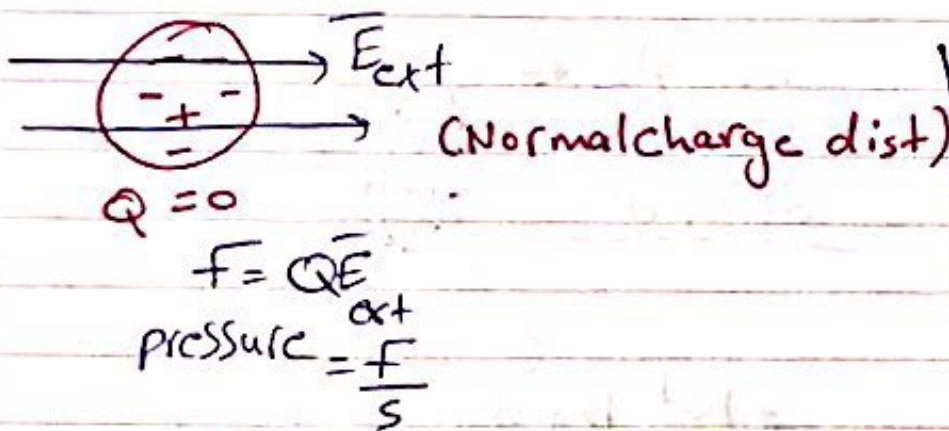 Ē_ext
(Normal charge dist)
Q = 0
F̄ = QĒ_ext
pressure = F/S